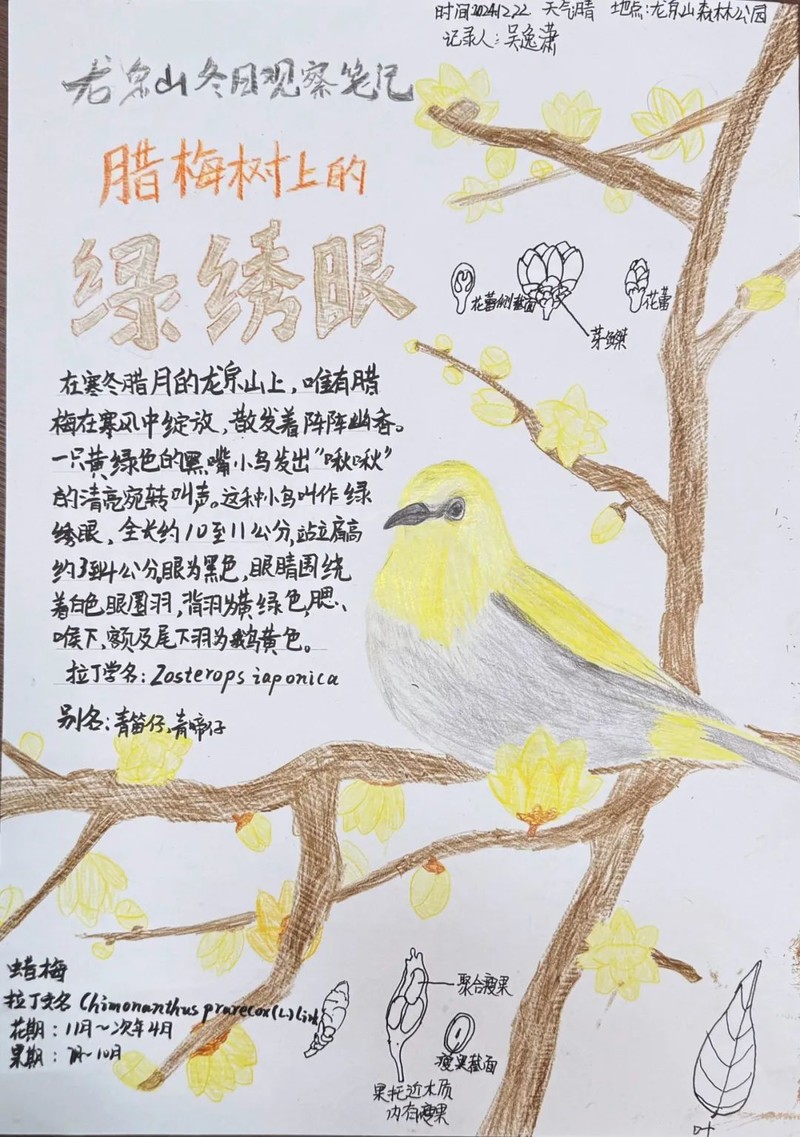 时间2024.12.22 天气晴 地点:龙泉山森林公园
记录人:吴逸潇
龙泉山冬日观察笔记
腊梅树上的
绿绣眼
花蕾侧截面
花蕾
芽鳞
在寒冬腊月的龙泉山上,唯有腊
梅在寒风中绽放,散发着阵阵幽香。
一只黄绿色的黑嘴小鸟发出“啾啾”
的清亮宛转叫声。这种小鸟叫作绿
绣眼,全长约10至11公分,站立肩高
约3到4公分。眼为黑色,眼睛围绕
着白色眼圈羽,背羽为黄绿色,腮、
喉下、额及尾下羽为鹅黄色。
拉丁学名:Zosterops iaponica
别名:青笛仔、青啼仔
蜡梅
拉丁学名 Chimonanthus praecox(L.)Link
花期:11月~次年4月
果期:7月~10月
聚合瘦果
瘦果截面
果托近木质
内有瘦果
叶